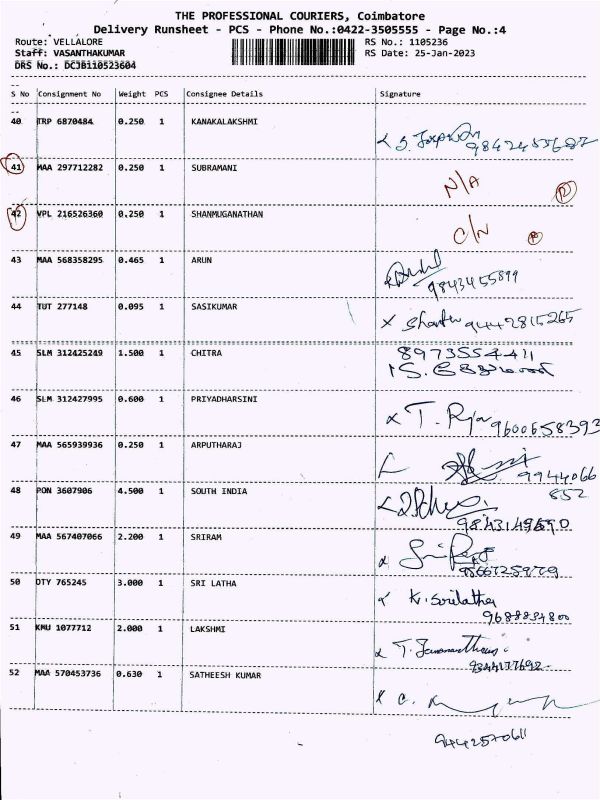 THE PROFESSIONAL COURIERS, Coimbatore
Delivery Runsheet - PCS - Phone No.:0422-3505555 - Page No.:4
Route: VELLALORE RS No.: 1105236
Staff: VASANTHAKUMAR RS Date: 25-Jan-2023
DRS No.: DCJB110523604
S No Consignment No Weight PCS Consignee Details Signature
40 TRP 6870484 0.250 1 KANAKALAKSHMI
41 MAA 297712282 0.250 1 SUBRAMANI N/A
42 VPL 216526360 0.250 1 SHANMUGANATHAN C/N
43 MAA 568358295 0.465 1 ARUN
9843455899
44 TUT 277148 0.095 1 SASIKUMAR X 9442815265
45 SLM 312425249 1.500 1 CHITRA
46 SLM 312427995 0.600 1 PRIYADHARSINI
9600658393
47 MAA 565939936 0.250 1 ARPUTHARAJ
9944066
852
48 PON 3607906 4.500 1 SOUTH INDIA
49 MAA 567407066 2.200 1 SRIRAM
50 OTY 765245 3.000 1 SRI LATHA K. Srilatha
9688834800
51 KMU 1077712 2.000 1 LAKSHMI
9344177692
52 MAA 570453736 0.630 1 SATHEESH KUMAR
9442570611